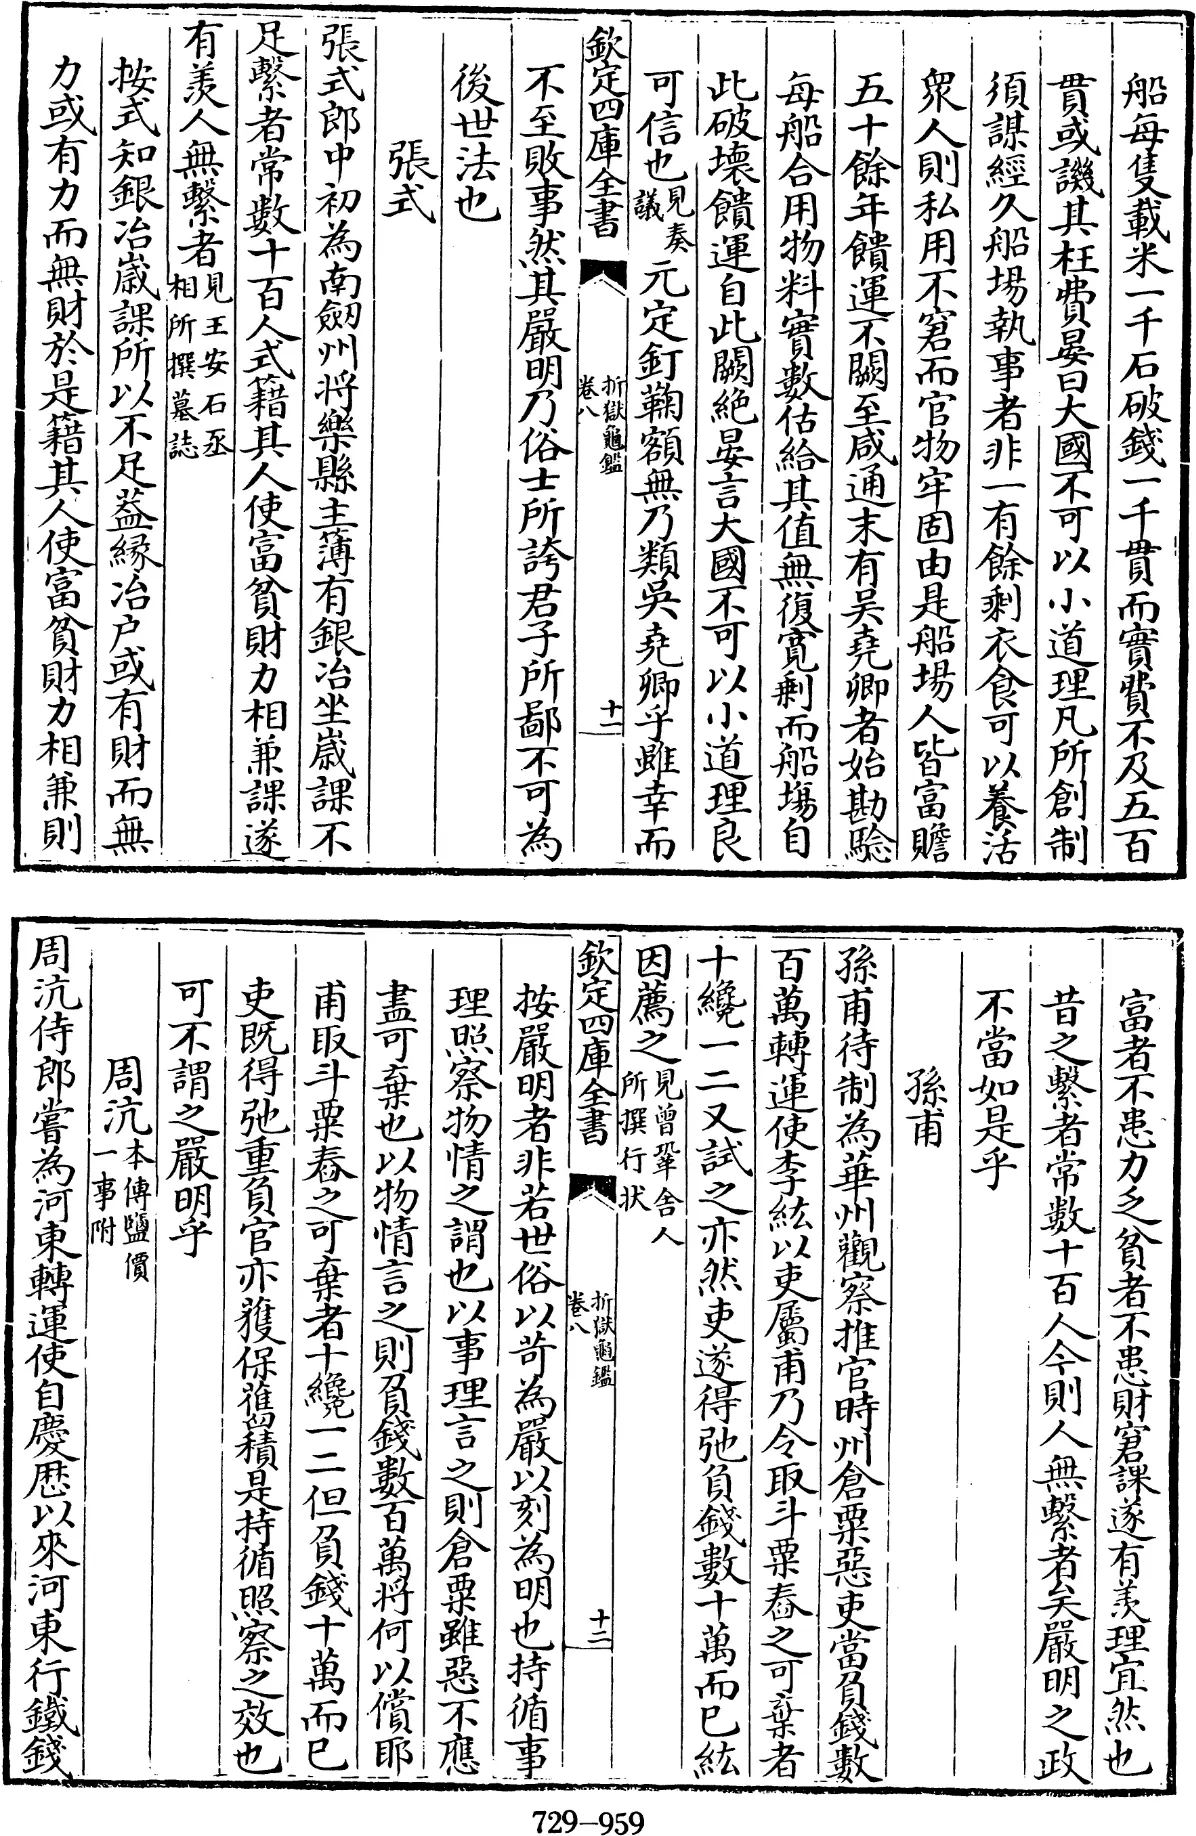 船每隻載米一千石破錢一千貫而實費不及五百
貫或譏其枉費晏曰大國不可以小道理凡所創制
須謀經久船場執事者非一有餘剩衣食可以養活
衆人則私用不窘而官物牢固由是船場人皆富贍
五十餘年饋運不闕至咸通末有吴堯卿者始勘驗
每船合用物料實數估給其值無復寛剩而船塲自
此破壞饋運自此闕絶晏言大國不可以小道理良
可信也見奏議元定釘鞠額無乃類吳堯卿乎雖幸而
欽定四庫全書 折獄龜鑑 卷八 十一
不至敗事然其嚴明乃俗士所誇君子所鄙不可為
後世法也
張式
張式郎中初為南劒州將樂縣主簿有銀冶坐嵗課不
足繫者常數十百人式籍其人使富貧財力相兼課遂
有羡人無繫者見王安石丞相所撰墓誌
按式知銀冶嵗課所以不足葢緣冶户或有財而無
力或有力而無財於是籍其人使富貧財力相兼則
富者不患力乏貧者不患財窘課遂有羡理宜然也
昔之繫者常數十百人今則人無繫者矣嚴明之政
不當如是乎
孫甫
孫甫待制為華州觀察推官時州倉粟惡吏當負錢數
百萬轉運使李紘以吏屬甫乃令取斗粟舂之可棄者
十纔一二又試之亦然吏遂得弛負錢數十萬而已紘
因薦之見曾鞏舍人所撰行狀
欽定四庫全書 折獄龜鑑 卷八 十二
按嚴明者非若世俗以苛為嚴以刻為明也持循事
理照察物情之謂也以事理言之則倉粟雖惡不應
盡可棄也以物情言之則負錢數百萬將何以償耶
甫取斗粟舂之可棄者十纔一二但負錢十萬而已
吏既得弛重負官亦獲保舊積是持循照察之效也
可不謂之嚴明乎
周沆本傳鹽價一事附
周沆侍郎嘗為河東轉運使自慶厯以來河東行鐵錢
729-959